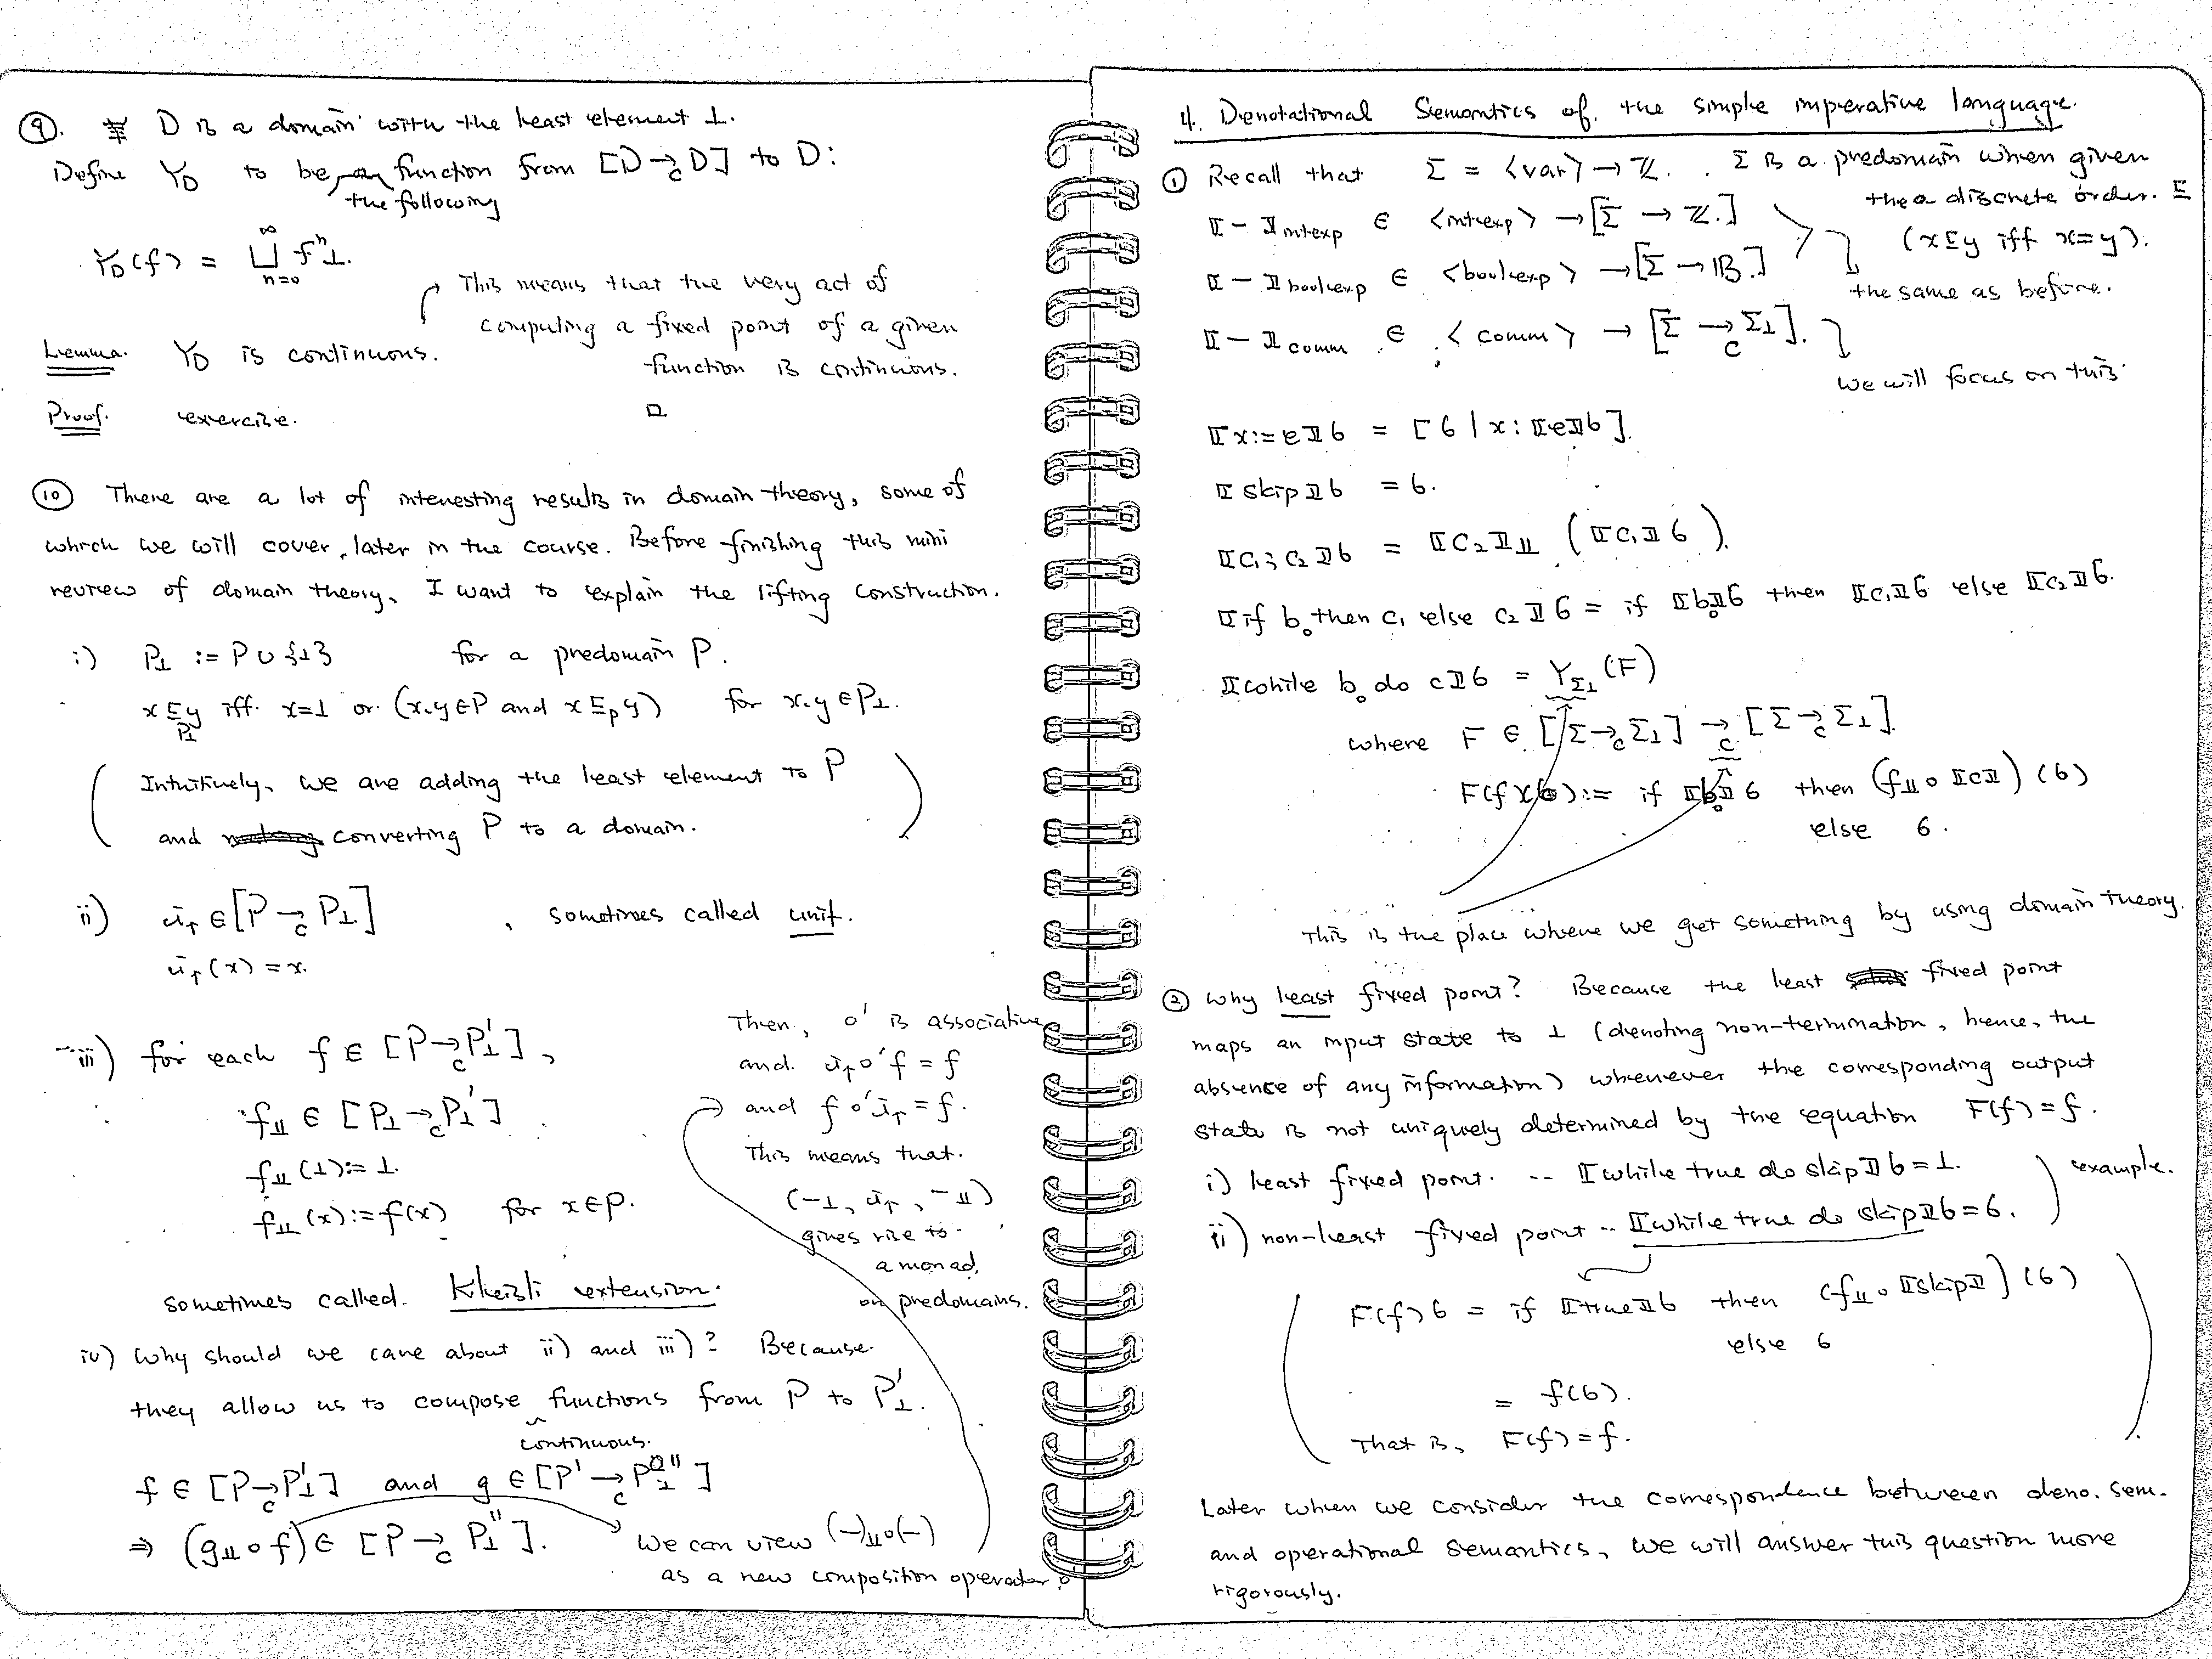 ⑨. D is a domain with the least element ⊥.
Define Y_D to be the following function from [D →_c D] to D:
Y_D(f) = ⊔_{n=0}^∞ f^n ⊥.
This means that the very act of
computing a fixed point of a given
function is continuous.
Lemma. Y_D is continuous.
Proof. exercise. □
⑩ There are a lot of interesting results in domain theory, some of
which we will cover later in the course. Before finishing this mini
review of domain theory, I want to explain the lifting construction.
i) P_⊥ := P ∪ {⊥} for a predomain P.
x ⊑_{P_⊥} y iff x=⊥ or (x,y ∈ P and x ⊑_P y) for x,y ∈ P_⊥.
( Intuitively, we are adding the least element to P
and converting P to a domain. )
ii) i_↑ ∈ [P →_c P_⊥] , sometimes called unit.
i_↑(x) = x.
iii) for each f ∈ [P →_c P'_⊥],
f_⊥⊥ ∈ [P_⊥ →_c P'_⊥]
f_⊥⊥(⊥) := ⊥.
f_⊥⊥(x) := f(x) for x ∈ P.
sometimes called Kleisli extension.
Then, o' is associative
and i_↑ o' f = f
and f o' i_↑ = f.
This means that
(-_⊥, i_↑, -_⊥⊥)
gives rise to
a monad
on predomains.
iv) Why should we care about ii) and iii)? Because
they allow us to compose functions from P to P'_⊥.
continuous.
f ∈ [P →_c P'_⊥] and g ∈ [P' →_c P''_⊥]
⇒ (g_⊥⊥ ∘ f) ∈ [P →_c P''_⊥].
We can view (-)_⊥⊥ ∘ (-)
as a new composition operator o'
4. Denotational Semantics of the simple imperative language.
① Recall that Σ = <var> → ℤ. Σ is a predomain when given
the a discrete order. ⊑
(x ⊑ y iff x=y).
⟦-⟧_intexp ∈ <intexp> → [Σ → ℤ.]
⟦-⟧_boolexp ∈ <boolexp> → [Σ → 𝔹.]
the same as before.
⟦-⟧_comm ∈ <comm> → [Σ →_c Σ_⊥].
we will focus on this.
⟦x:=e⟧σ = [σ | x: ⟦e⟧σ].
⟦skip⟧σ = σ.
⟦c₁; c₂⟧σ = ⟦c₂⟧_⊥⊥ (⟦c₁⟧σ).
⟦if b then c₁ else c₂⟧σ = if ⟦b⟧σ then ⟦c₁⟧σ else ⟦c₂⟧σ.
⟦while b do c⟧σ = Y_{Σ_⊥}(F)
where F ∈ [[Σ →_c Σ_⊥] →_c [Σ →_c Σ_⊥].
F(f)(σ) := if ⟦b⟧σ then (f_⊥⊥ ∘ ⟦c⟧)(σ)
else σ.
This is the place where we get something by using domain theory.
② Why least fixed point? Because the least fixed point
maps an input state to ⊥ (denoting non-termination, hence, the
absence of any information) whenever the corresponding output
state is not uniquely determined by the equation F(f) = f.
i) least fixed point. -- ⟦while true do skip⟧σ = ⊥.
example.
ii) non-least fixed point -- ⟦while true do skip⟧σ = σ.
F(f)σ = if ⟦true⟧σ then (f_⊥⊥ ∘ ⟦skip⟧)(σ)
else σ
= f(σ).
That is, F(f) = f.
Later when we consider the correspondence between deno. sem.
and operational semantics, we will answer this question more
rigorously.